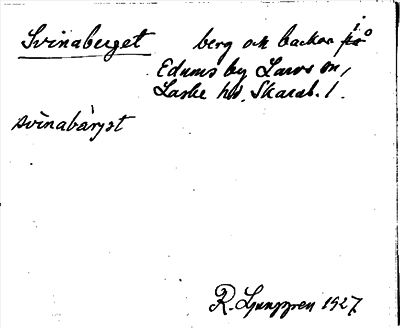 Svinaberget berg och backar i
Edums by Larvs sn,
Laske hd. Skarab. l.
svìnabàrjət
R. Ljunggren 1927